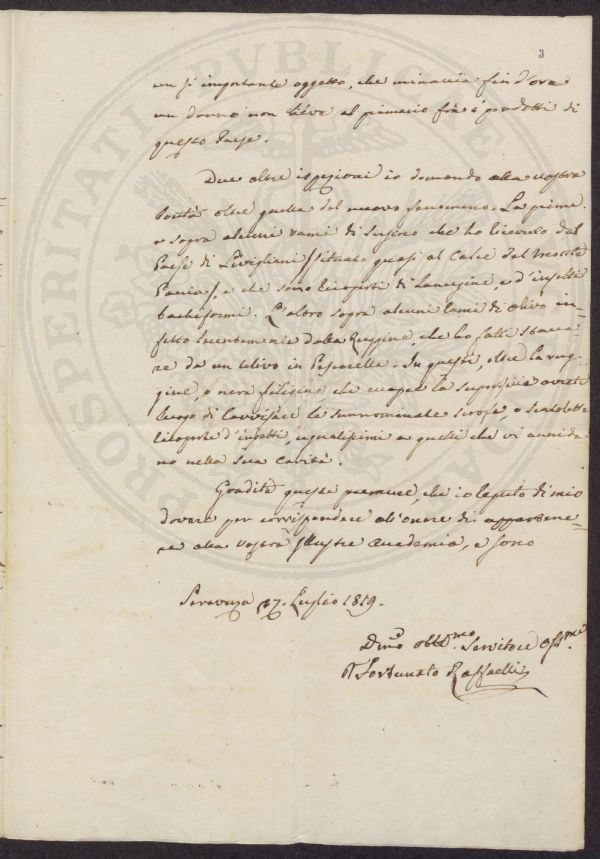 3
un sì importante oggetto, che minaccia fin d'ora
un danno non lieve al primario frà i prodotti di
questo Paese.
Due altre ispezioni io domando alla vostra
bontà oltre quella del nuovo fenomeno. La prima
e sopra alcuni rami di Susino che ho ricevuto dal
Paese di Livigliani (situato quasi al Calce del Monte
Pania), e che sono ricoperti di Lanugine, e d'insetti
bachiformi. L'altra sopra alcuni rami di olivo in-
fetto dalla Ruggine, che ho fatti stacca
re da un ulivo in . In questi, oltre la rug-
gine, o nera filigine che cuopre la superficie avrete
luogo di ravvisare le surnominate , o scatolette
ricoperte d'insetti, ugualissimi a quelli che vi annida
no nella sua cavità.
Gradite queste premure, che io reputo di mio
dovere per corrispondere all'onore di appartene-
re alla vostra Illustre Accademia, e sono
Seravezza 27. Luglio 1819.
Dmo obblmo Servitore
Fortunato Raffaelli
PROSPERITATI PVBLICAE